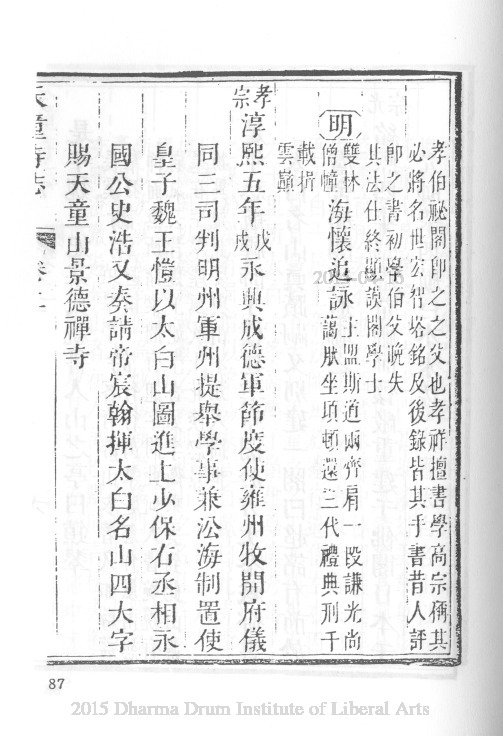 孝伯祕閣卽之之父也孝祥擅書學高宗稱其
必將名世宏智塔銘及後錄皆其手書昔人評
卽之書初學伯父晚失
其法仕終顯謨閣學士
明
雙林
僧幢
海懷追詠
土盟斯道兩齊肩一段謙光尚
藹肰坐頃頓還三代禮典刑千
載揖
雲巔
孝宗淳熙五年戊戌永興成德軍節度使雍州牧開府儀
同三司判明州軍州提舉學事兼沿海制置使
皇子魏王愷以太白山圖進上少保右丞相永
國公史浩又奏請帝宸翰揮太白名山四大字
賜天童山景德禪寺
天童寺志 卷二
87
2015 Dharma Drum Institute of Liberal Arts